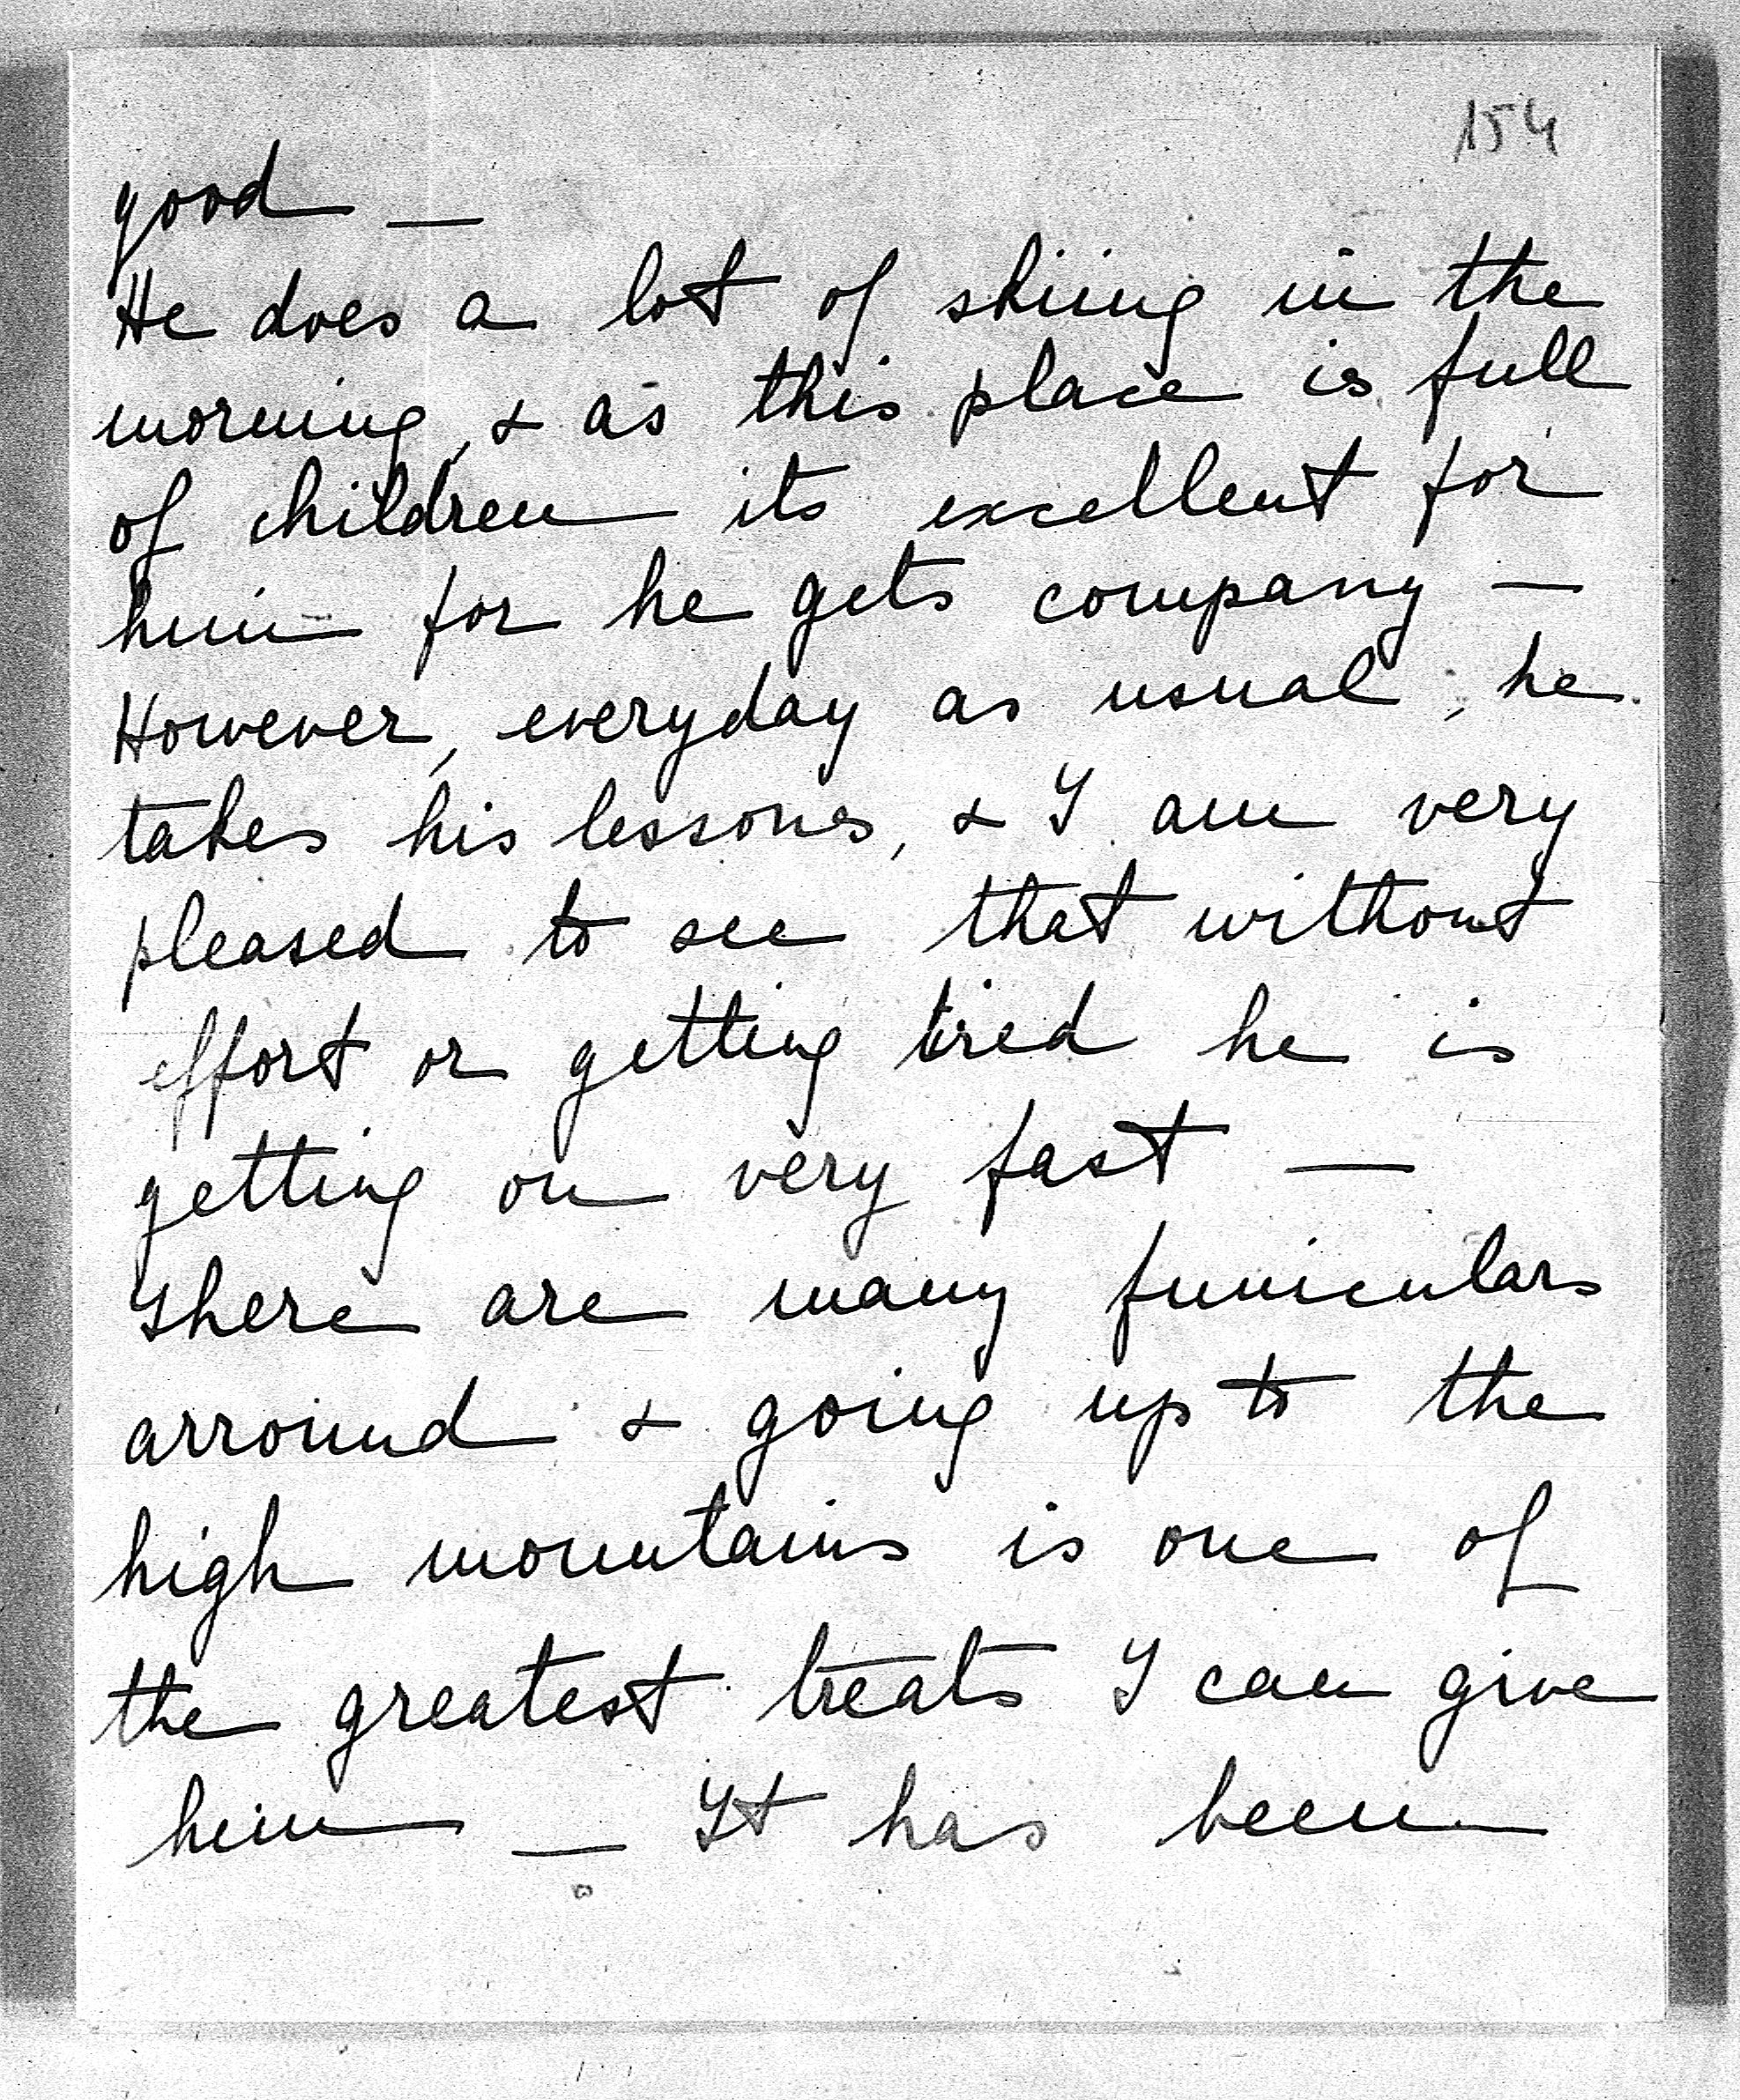 154
good —
He does a lot of skiing in the
morning, & as this place is full
of children its excellent for
him for he gets company —
However, everyday as usual, he
takes his lessons, & I am very
pleased to see that without
effort or getting tired he is
getting on very fast —
There are many funiculars
arround & going up to the
high mountains is one of
the greatest treats I can give
him — It has been